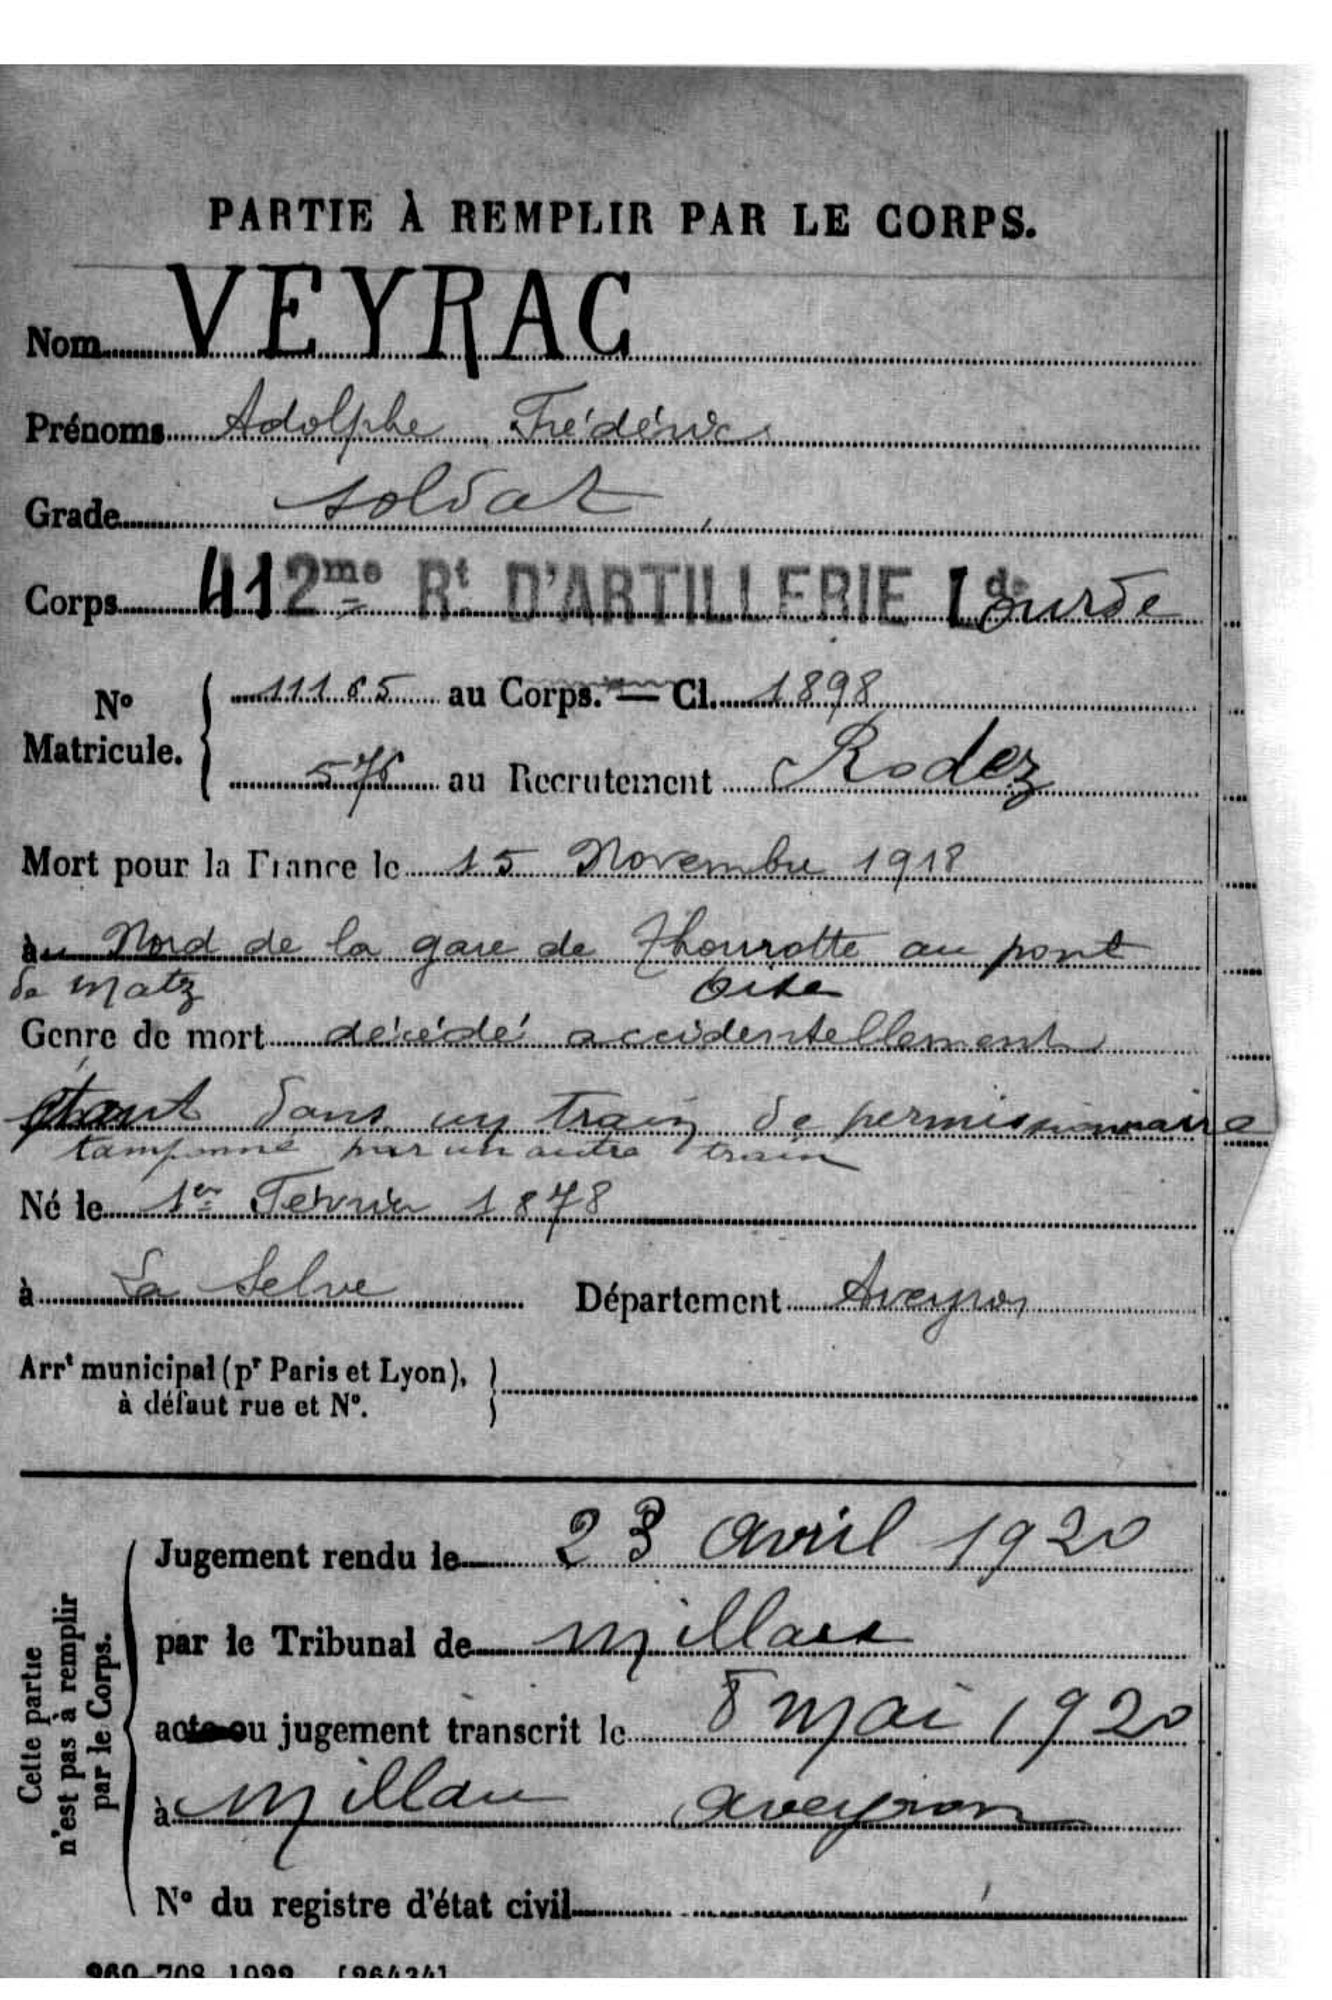 PARTIE À REMPLIR PAR LE CORPS.
Nom VEYRAC
Prénoms Adolphe Frédéric
Grade soldat
Corps 412me Rt D'ARTILLERIE Lourde
No Matricule. 11165 au Corps. — Cl. 1898
576 au Recrutement Rodez
Mort pour la France le 15 Novembre 1918
au Nord de la gare de Thourotte au pont
de Matz Oise
Genre de mort décédé accidentellement
étant dans un train de permissionnaire
tamponné par un autre train
Né le 1er Février 1878
à La Selve Département Aveyron
Arrt municipal (pr Paris et Lyon),
à défaut rue et No.
Cette partie
n'est pas à remplir
par le Corps.
Jugement rendu le 23 avril 1920
par le Tribunal de Millau
acte ou jugement transcrit le 8 mai 1920
à Millau aveyron
No du registre d'état civil
960-708-1922. [26434]